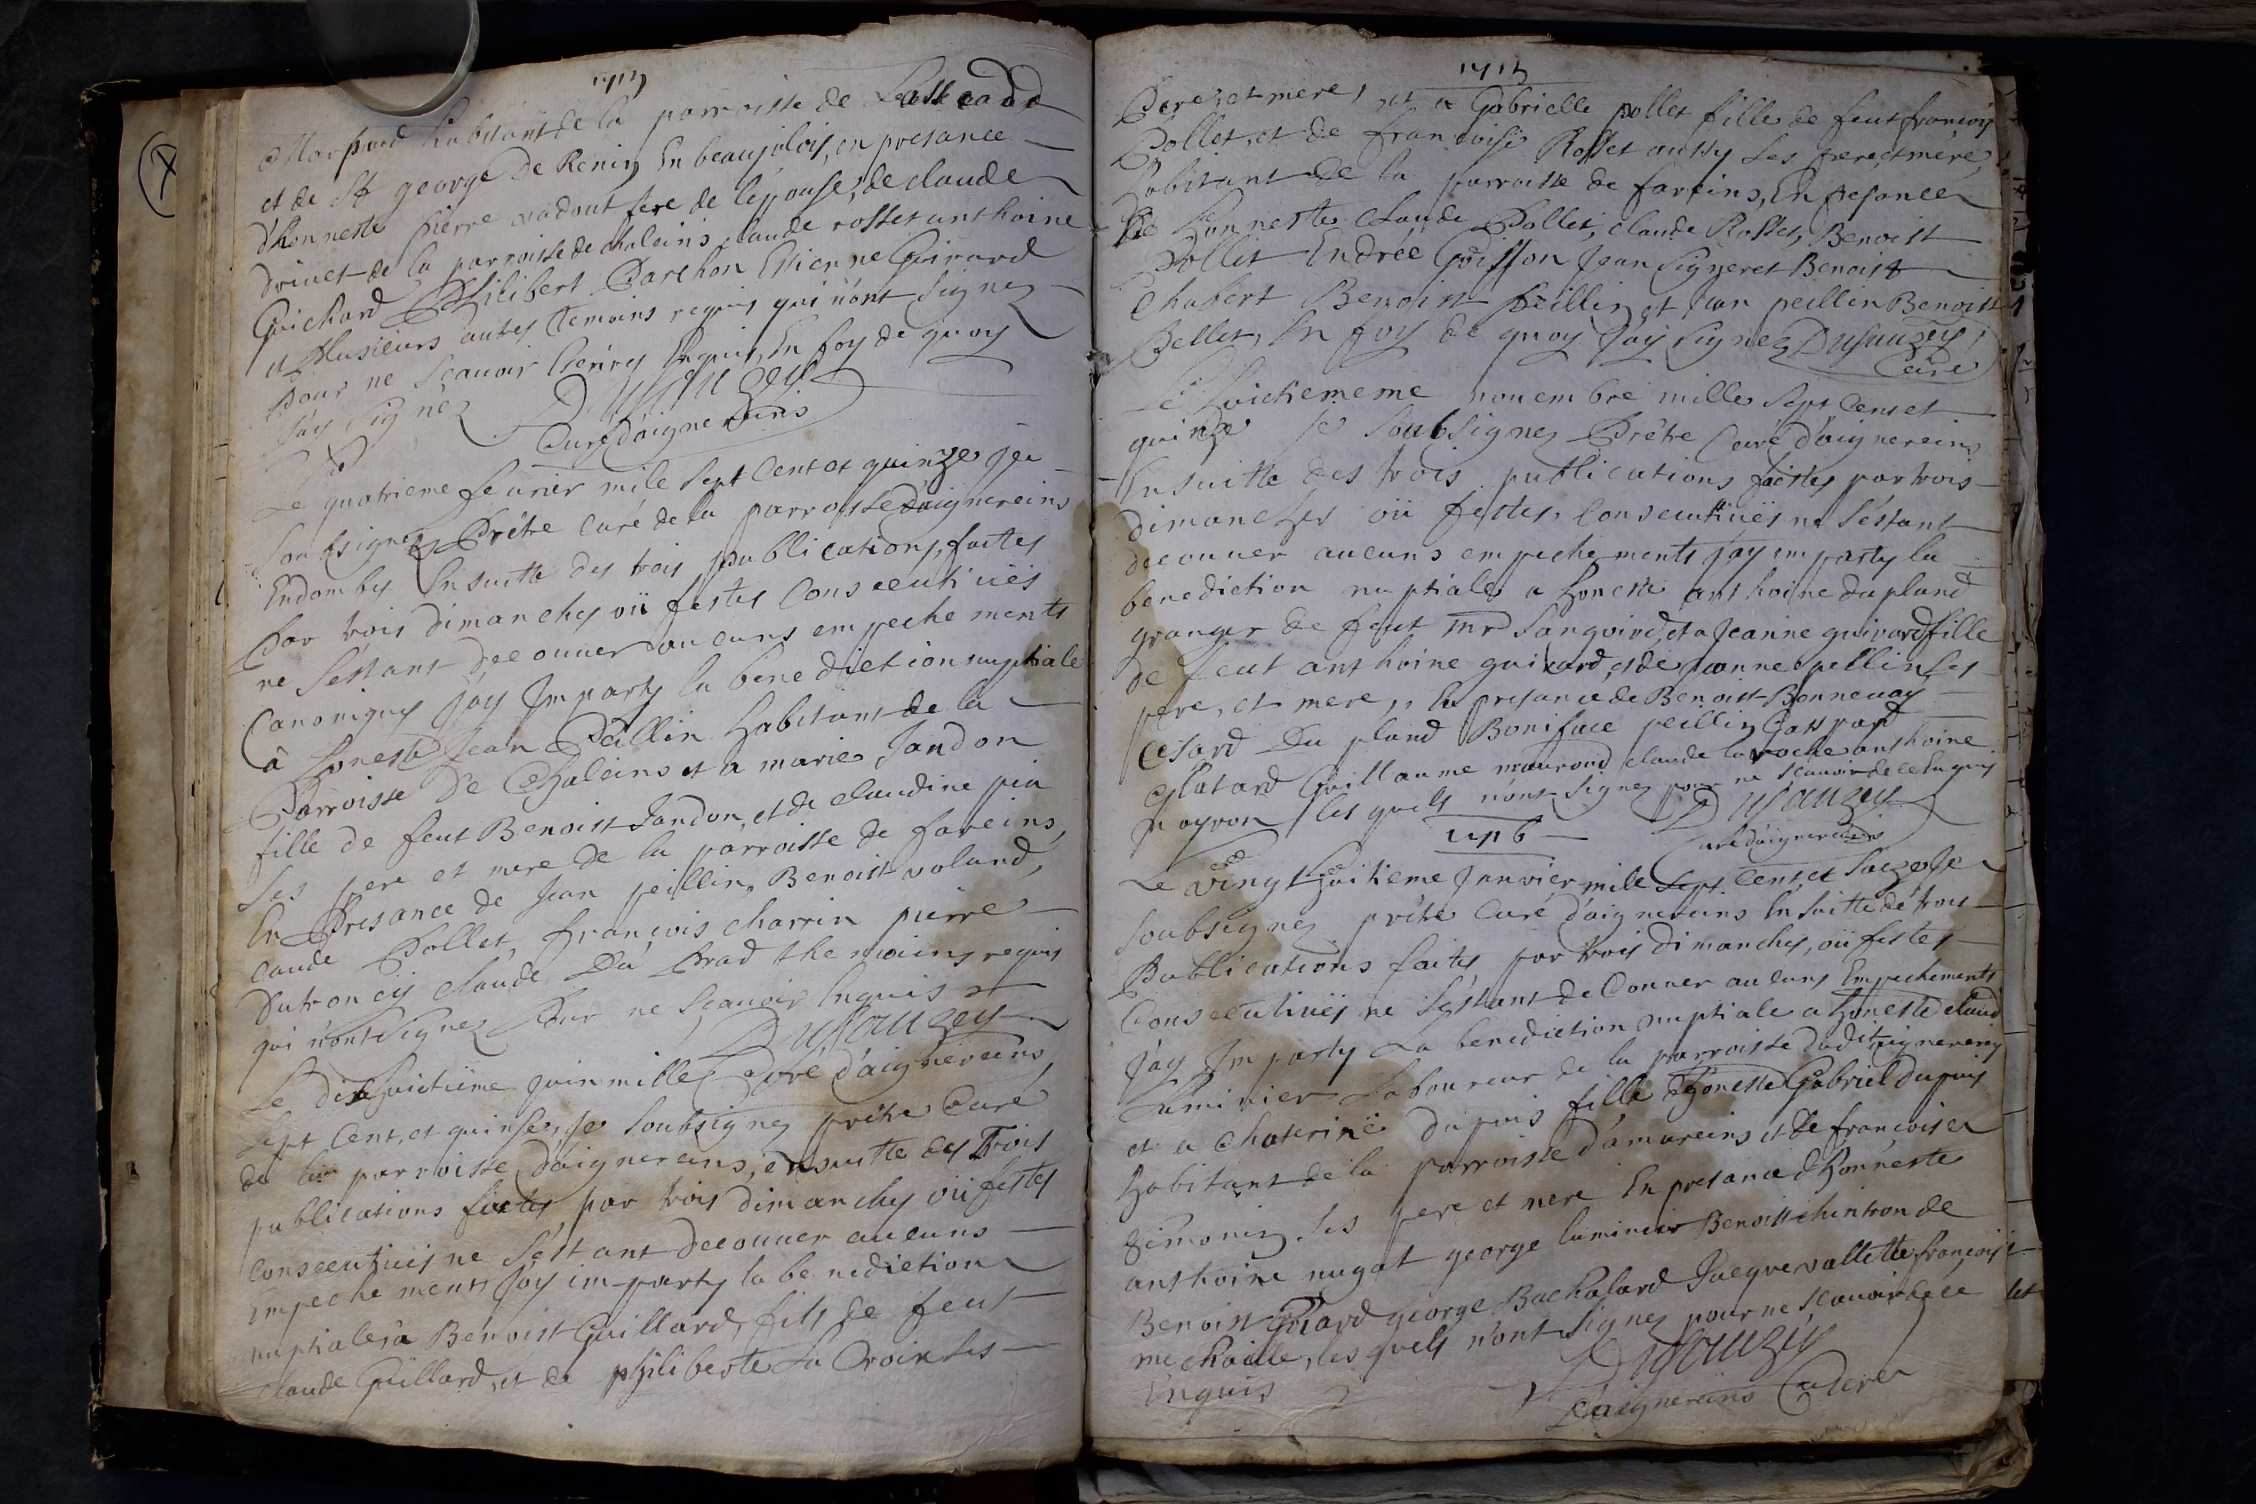 1715
habitant de la parroisse de
et de St george De Renin En beaujolois, en presance
d'honneste pierre vadout fere de lepouse, de claude
drivet de la parroisse de chaleins, claude rosset anthoine
Guichard Philibert Darchon Estienne Girard
et plusieurs autres temoins requis qui n'ont signez
pour ne scauoir Escrire Enquis, En foy de quoy
J'ay signéz Dusauzey
Curé d'aignereins
Le quatrieme feurier mile sept Cent et quinze je
soubsignez Prétre Curé de la parroisse d'aignereins
Endombes Ensuitte des trois publications, faites
Par trois dimanches oü festes Consecutiues
ne s'estant decouuer aucuns empechements
Canoniques j'ay Imparty la benediction nuptiale
à honeste Jean Peillin habitant de la
Parroisse De Chaleins et a marie Jandon
fille de feut Benoist Jandon, et de claudine pin
ses pere et mere de la parroisse de fareins,
En Presance de Jean peillin, Benoist voland,
claude Pollet, françois charrin pierre
Dutroncy claude Du Prad themoins requis
qui n'ont signez Pour ne scauoir Enquis
Dusauzey
Le dix huictiême juin mille Curé d'aignereins
sept Cent, et quinse, je soubsignez prétre Curé
de la parroisse d'aignereins, ensuitte des Trois
publications faites par trois dimanches oü festes
consecutiues ne s'estant decouuer aucuns
Empechements J'ay imparty la benediction
nuptiale, a Benoist Guillard, fils de feut
claude Guillard, et de philiberte La Croix ses
1715
Pere, et mere, et a Gabrielle pollet fille de feut françois
Pollet, et de françoise Rosset aussy ses pere, et mére,
habitant De la parroisse de fareins, En presance
De honneste claude Pollet, claude Rosset, Benoist
Pollet Endrée Goiffon Jean Signeret Benoist
Chabert Benoist peillin, et jean peillin Benoist
Bellet, En foy de quoy J'ay signez Dusauzey,
Curé
Le huictiememe nouembre mille sept Cent et
quinze je soubsignez Prétre Curé d'aignereins
Ensuitte des trois publications faictes par trois
dimanches oü festes, Consecutiües ne s'estant
decouuer aucuns empechements j'ay imparty la
benediction nuptiale a honeste anthoine Dupland
granger de feut mr Sanguird, et a Jeanne guirard fille
De feut anthoine guirard, et de jeanne pellin ses
pere, et mere, En presance de Benoist Bonneuay
Cesard Du pland Boniface peillin Gaspard
Matard Guillaume mauroud claude laroche anthoine
poyron lesquels n'ont signez pour ne scauoir de ce Enquis
1716 Dusauzey
Curé d'aignereins
Le vingt huitieme Janvier mile sept Cent et saize Je
soubsignez prétre Curé d'aignereins En suitte dé trois
Publications faites par trois dimanches, oü festes
Consecutiües ne s'estant deConuer aucuns Empechements
J'ay Imparty La benediction nuptiale a honeste claud
Luminier Laboureur de la parroisse dudit aignereins
et a Chaterine dupuis fille d'honeste Gabriel dupuis
habitant de la parroisse d'amareins et De françoise
Simonin ses pere et mere En presance d'honneste
anthoine nugat george luminier Benoist chintron de
Benoist Guard george Bachalard Jacque vallette françois
michaille, lesquels n'ont signez pour ne scauoir de ce
Enquis Dusauzey
d'aignereins Curé